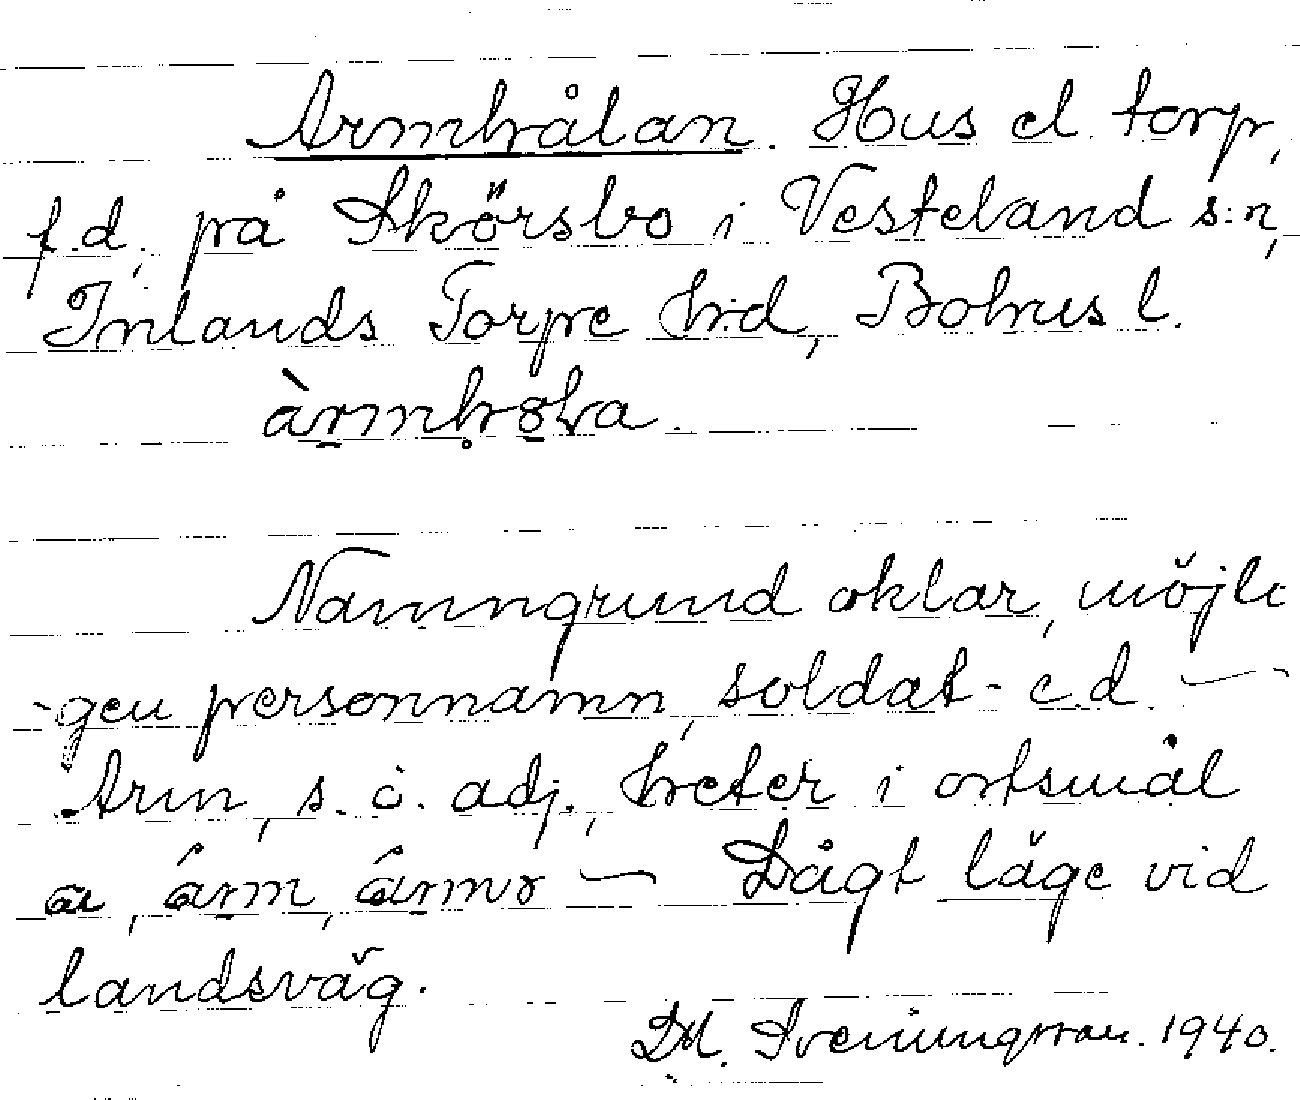 Armhålan. Hus el. torp,
f.d., på Skörsbo i Vesteland s:n,
Inlands Torpe h:d, Bohus l.
Namngrund oklar, möjli
-gen personnamn, soldat- e.d. —
Arm, s. o. adj., heter i ortsmål
arm, armər — Lågt läge vid
landsväg.
D.M. Sveningsson. 1940.